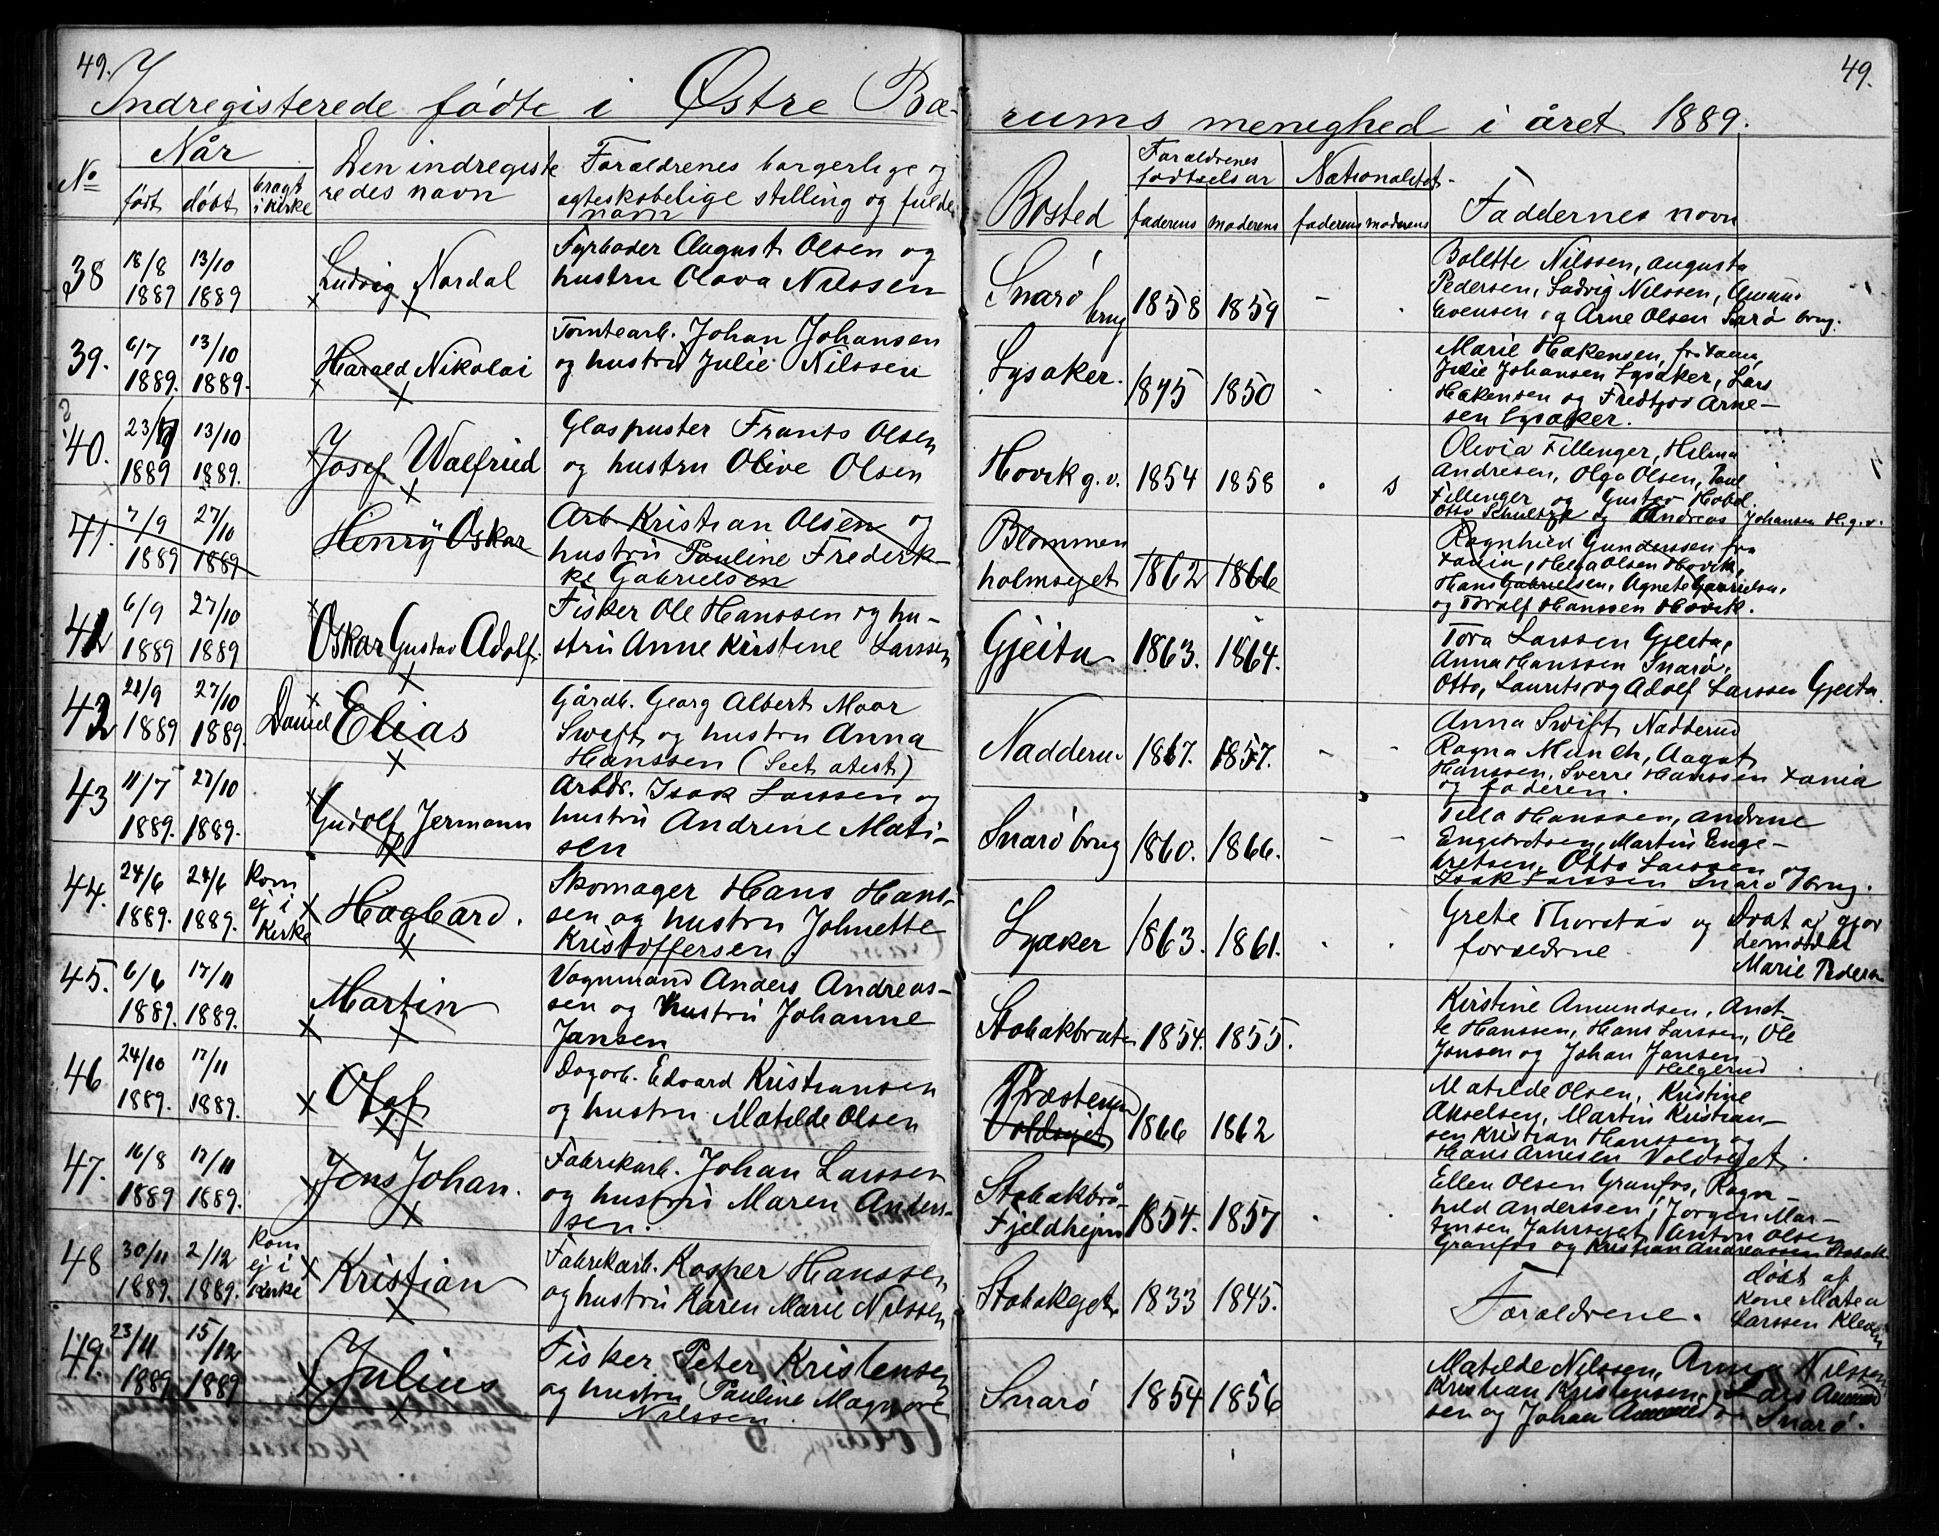 49.
49.
Indregisterede födte i Østre Bæ-
rums menighed i året 1889.
No
Når
födt
döbt
bragt i kirke
Den indregiste
redes navn
Foraldrenes borgerlige og
egteskabelige stilling og fulde
navn
Bosted
Foraldrenes
fødselsår
faderens
moderens
Nationalitet
faderens
moderens
Faddernes navn
38
18/8 13/10
1889 1889
Ludvig Nordal
Fyrböder August Olsen og
hustru Olava Nilssen
Snarö
brug
1858 1859
Bolette Nilssen, Augusta
Pedersen, Ludvig Nilssen,
Evensen og Arne Olsen Snarö brug.
39.
6/7 13/10
1889. 1889.
Harald Nikolai
Tomtearb. Johan Johansen
og hustru Julie Nilssen
Lysaker.
1845 1850
Marie Hakensen,
Julie Johansen Lysaker, Lars
Hakensen og Fredtjov Arne-
sen Lysaker.
40.
13/10
1889 1889.
Josef Walfried
Glaspuster Frants Olsen
og hustru Olive Olsen
Hovik g.v.
1854 1858
s
Olivia Fillinger, Hilma
Andresen, Olga Olsen, Paul
Fillenger og Gustav Hobøl.
Otto Schultzk og Andreas Johansen H.g.v.
41.
7/9 27/10
1889 1889
Henry Oskar
Arb. Kristian Olsen og
hustru Pauline Frederik-
ke Gabrielsen
Blommen
holmseget
1862 1866
Ragnhild Gunderssen fra
Xania, Helga Olsen Hovik,
Hans Gabrielsen, Agnete Gabrielsen,
og Toralf Hanssen Hovik.
42
6/9 27/10
1889 1889
Oskar Gustav Adolf.
Fisker Ole Hanssen og hu-
stru Anne Kirstine Larssen
Gjeita
1863. 1864.
Tora Larssen Gjeita,
Anna Hanssen Snarö,
Otto, Laurits og Adolf Larssen Gjeita.
42
22/9 27/10
1889 1889.
Daniel Elias
Gårdb. Georg Albert Moor
Swift og hustru Anna
Hanssen (Seet atest)
Nadderu.
1867. 1857.
Anna Swift Nadderud
Ragna Munch, August
Hanssen, Sverre Hanssen Xania
og faderen.
43
11/7 27/10
1889. 1889.
Gudolf Jermann
Arbdr. Isak Larssen og
hustru Andrine Mati-
sen
Snarö brug
1860. 1866.
Tilla Hanssen, Andrine
Engebretsen, Martin Enge-
bretsen, Otto Larssen og
Isak Larssen Snarö brug.
44.
24/6 24/6
1889. 1889.
Kom
ej i
Kirke
Hagbard.
Skomager Hans Hans-
sen og hustru Johnette
Kristoffersen.
Lysaker
1863. 1861.
Grete Thorstad og
foraldrne
Døbt af gjor
dermoder
Marie Pedersen
45.
6/6 17/11
1889. 1889.
Martin
Vognmand Anders Andreas-
sen og hustru Johanne
Jansen
Stabakbraten
1854. 1855.
Kirstine Amundsen, Anet-
te Hanssen, Hans Larssen, Ole
Jansen og Johan Jansen
Helgerud
46
24/10 17/11
1889. 1889.
Olaf
Dagarb. Edvard Kristiansen
og hustru Matilde Olsen
Præsterud
Voldseget
1866 1862
Matilde Olsen, Kristine
Akselsen, Martin Kristian-
sen Kristian Hanssen og
Hans Arnesen Voldseget.
47.
16/8 17/11
1889 1889.
Jens Johan.
Fabrikarb. Johan Larssen
og hustru Maren Anders-
sen.
Stabakbrå-
Fjeldhejm
1854. 1857
Ellen Olsen Granfos, Ragn-
hild Anderssen, Jorgen Mar-
tinsen Jahrseget, Anton Olsen
Granfos og Kristian Andreassen Stabak
48
30/11 2/12
1889. 1889.
Kom
ej i
Kirke
Kristian
Fabrikarb. Kasper Hanssen
og hustru Karen Marie Nilssen
Stabakeget.
1833 1845.
Foraldrene.
döbt af
Kone Matea
Larssen
49.
23/11 15/12
1889 1889
Julius
Fisker Peter Kristensen
og hustru Pauline Magnore
Nilssen.
Snarö
1854 1856
Matilde Nilssen, Anna Nilssen
Kristian Kristensen, Lars Amund
sen og Johan Snarö.